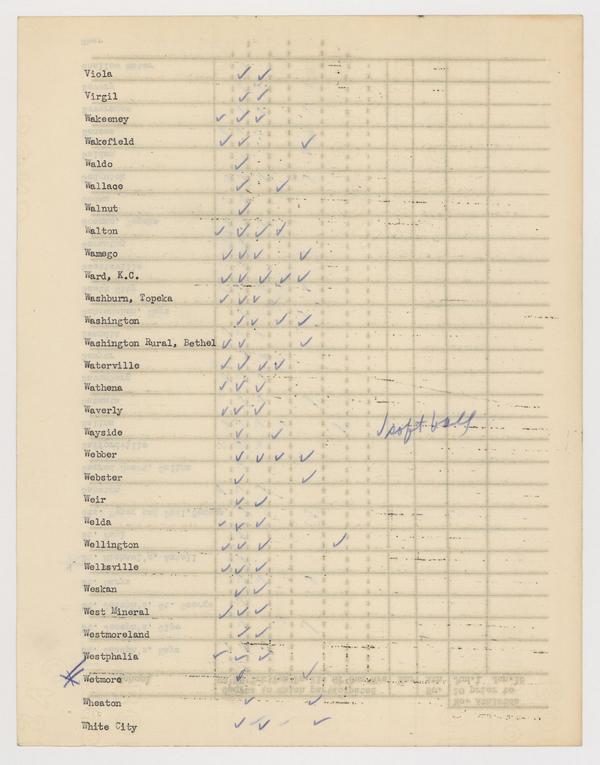 Viola ✓ ✓
Virgil ✓ ✓
Wakeeney ✓ ✓ ✓
Wakefield ✓ ✓ ✓
Waldo ✓
Wallace ✓ ✓
Walnut ✓
Walton ✓ ✓ ✓ ✓
Wamego ✓ ✓ ✓ ✓
Ward, K.C. ✓ ✓ ✓ ✓ ✓
Washburn, Topeka ✓ ✓ ✓
Washington ✓ ✓ ✓ ✓
Washington Rural, Bethel ✓ ✓ ✓
Waterville ✓ ✓ ✓ ✓
Wathena ✓ ✓ ✓
Waverly ✓ ✓ ✓
Wayside ✓ ✓ ✓ softball
Webber ✓ ✓ ✓ ✓
Webster ✓ ✓
Weir ✓ ✓
Welda ✓ ✓ ✓
Wellington ✓ ✓ ✓ ✓
Wellsville ✓ ✓ ✓
Weskan ✓ ✓
West Mineral ✓ ✓ ✓
Westmoreland ✓ ✓
Westphalia ✓ ✓ ✓
Wetmore ✓ ✓
Wheaton ✓ ✓
White City ✓ ✓ ✓ ✓